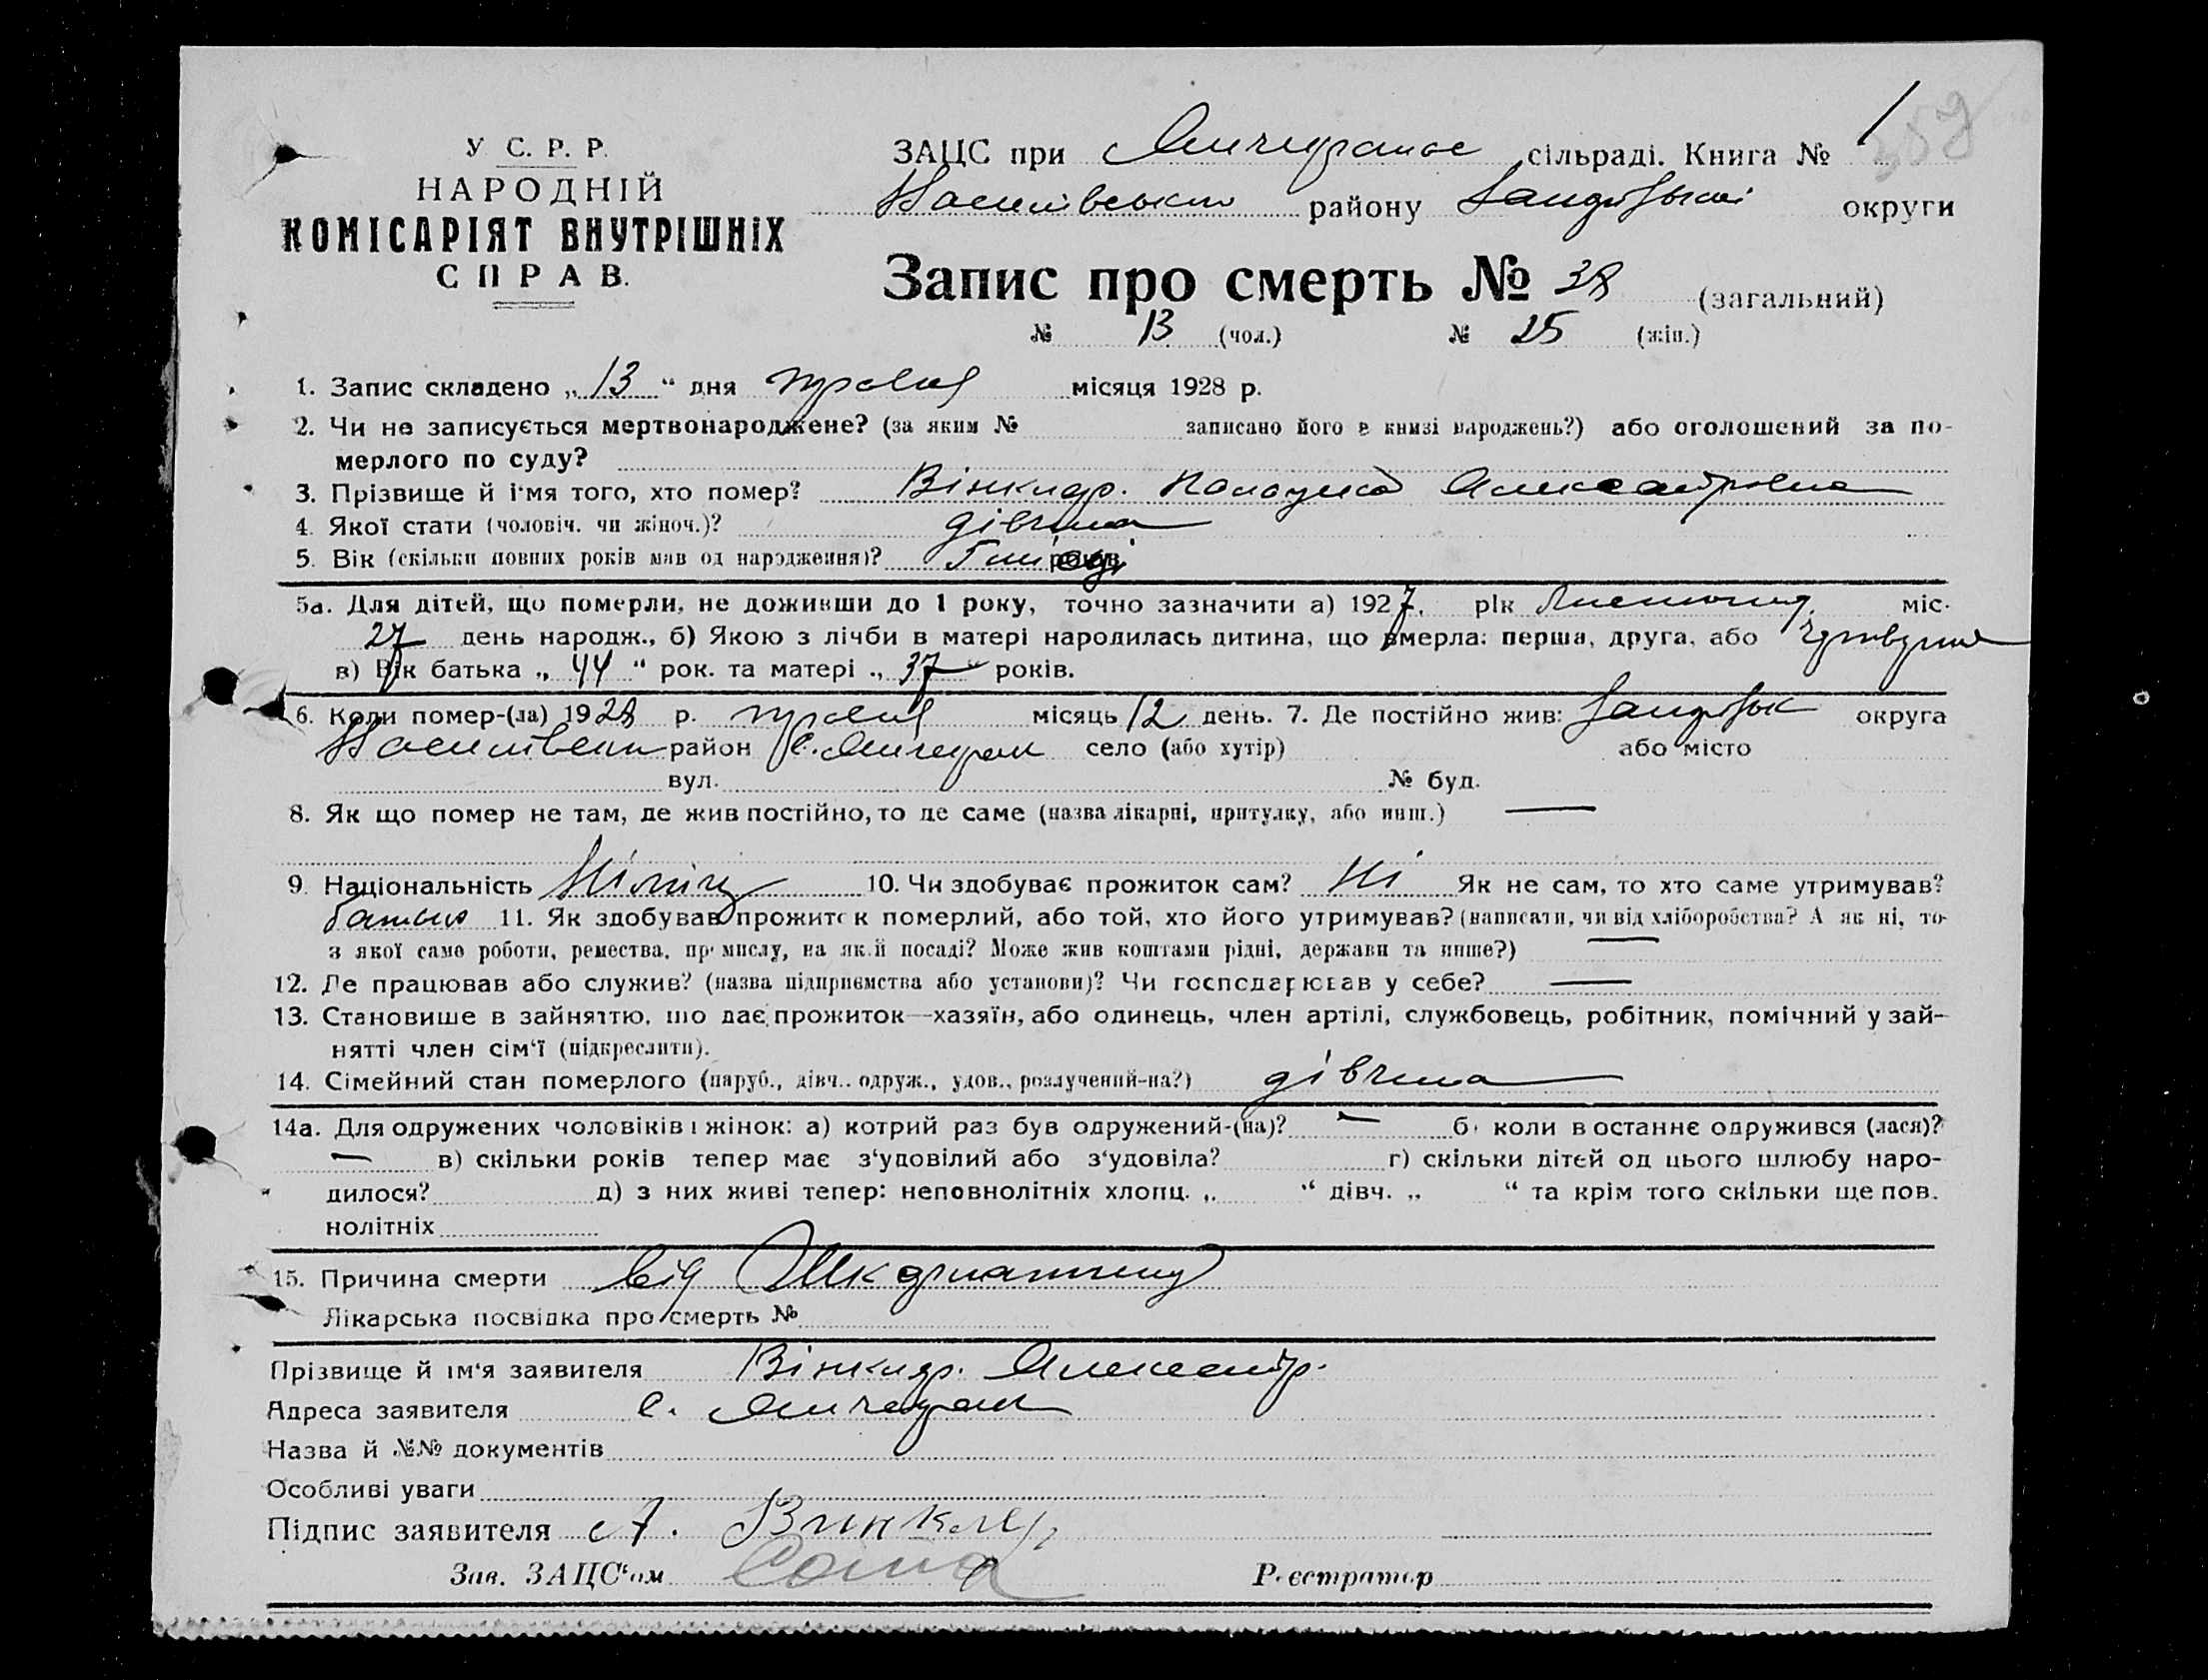 У С. Р. Р.
НАРОДНІЙ
КОМІСАРІЯТ ВНУТРІШНІХ
СПРАВ.
ЗАЦС при сільраді. Книга № 1
району округи
Запис про смерть № 38 (загальний)
№ 13 (чол.) № 25 (жін.)
1. Запис складено „13“ дня травня місяця 1928 р.
2. Чи не записується мертвонароджене? (за яким № записано його в книзі народжень?) або оголошений за по-
мерлого по суду?
3. Прізвище й і'мя того, хто помер? Вінклер. Александровна
4. Якої стати (чоловіч. чи жіноч.)? дівчина
5. Вік (скільки повних років мав од народження)? 5 місяці років
5а. Для дітей, що померли, не доживши до 1 року, точно зазначити а) 1927, рік Листопад. міс.
27 день народж., б) Якою з лічби в матері народилась дитина, що вмерла: перша, друга, або
в) Вік батька „44“ рок. та матері „37“ років.
6. Коли помер-(ла) 1928 р. травня місяць 12 день. 7. Де постійно жив: округа
район с. село (або хутір) або місто
вул. № буд.
8. Як що помер не там, де жив постійно, то де саме (назва лікарні, притулку, або инш.) —
9. Національність Німець 10. Чи здобуває прожиток сам? Ні Як не сам, то хто саме утримував?
батько 11. Як здобував прожиток померлий, або той, хто його утримував? (написати, чи від хліборобства? А як ні, то
з якої само роботи, ремества, промислу, на якій посаді? Може жив коштами рідні, держави та инше?) —
12. Де працював або служив? (назва підприємства або установи)? Чи господарював у себе? —
13. Становище в зайняттю, що дає прожиток—хазяїн, або одинець, член артілі, службовець, робітник, помічний у зай-
нятті член сім'ї (підкреслити).
14. Сімейний стан померлого (паруб., дівч.. одруж., удов., розлучений-на?) дівчина
14а. Для одружених чоловіків і жінок: а) котрий раз був одружений-(на)? — б) коли в останнє одружився (лася)?
— в) скільки років тепер має з'удовілий або з'удовіла? г) скільки дітей од цього шлюбу наро-
дилося? д) з них живі тепер: неповнолітніх хлопц. „ “ дівч. „ “ та крім того скільки ще пов.
нолітніх
15. Причина смерти від Шкарлатини
Лікарська посвідка про смерть №
Прізвище й ім'я заявителя Вінклер. Александр.
Адреса заявителя с.
Назва й №№ документів
Особливі уваги
Підпис заявителя А. Винклер
Зав. ЗАЦС'ом Реєстратор